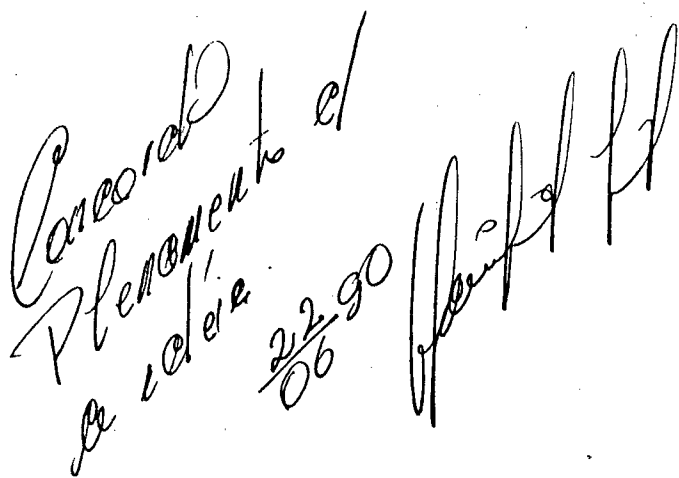 Concordo
Plenamente c/
a idéia.
22/06 90